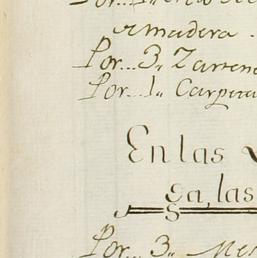 Por...1,,
armadera.
Por...3,, Zarten
Por...1,, Carpin
En las
ga, las
Por 3,, Mes